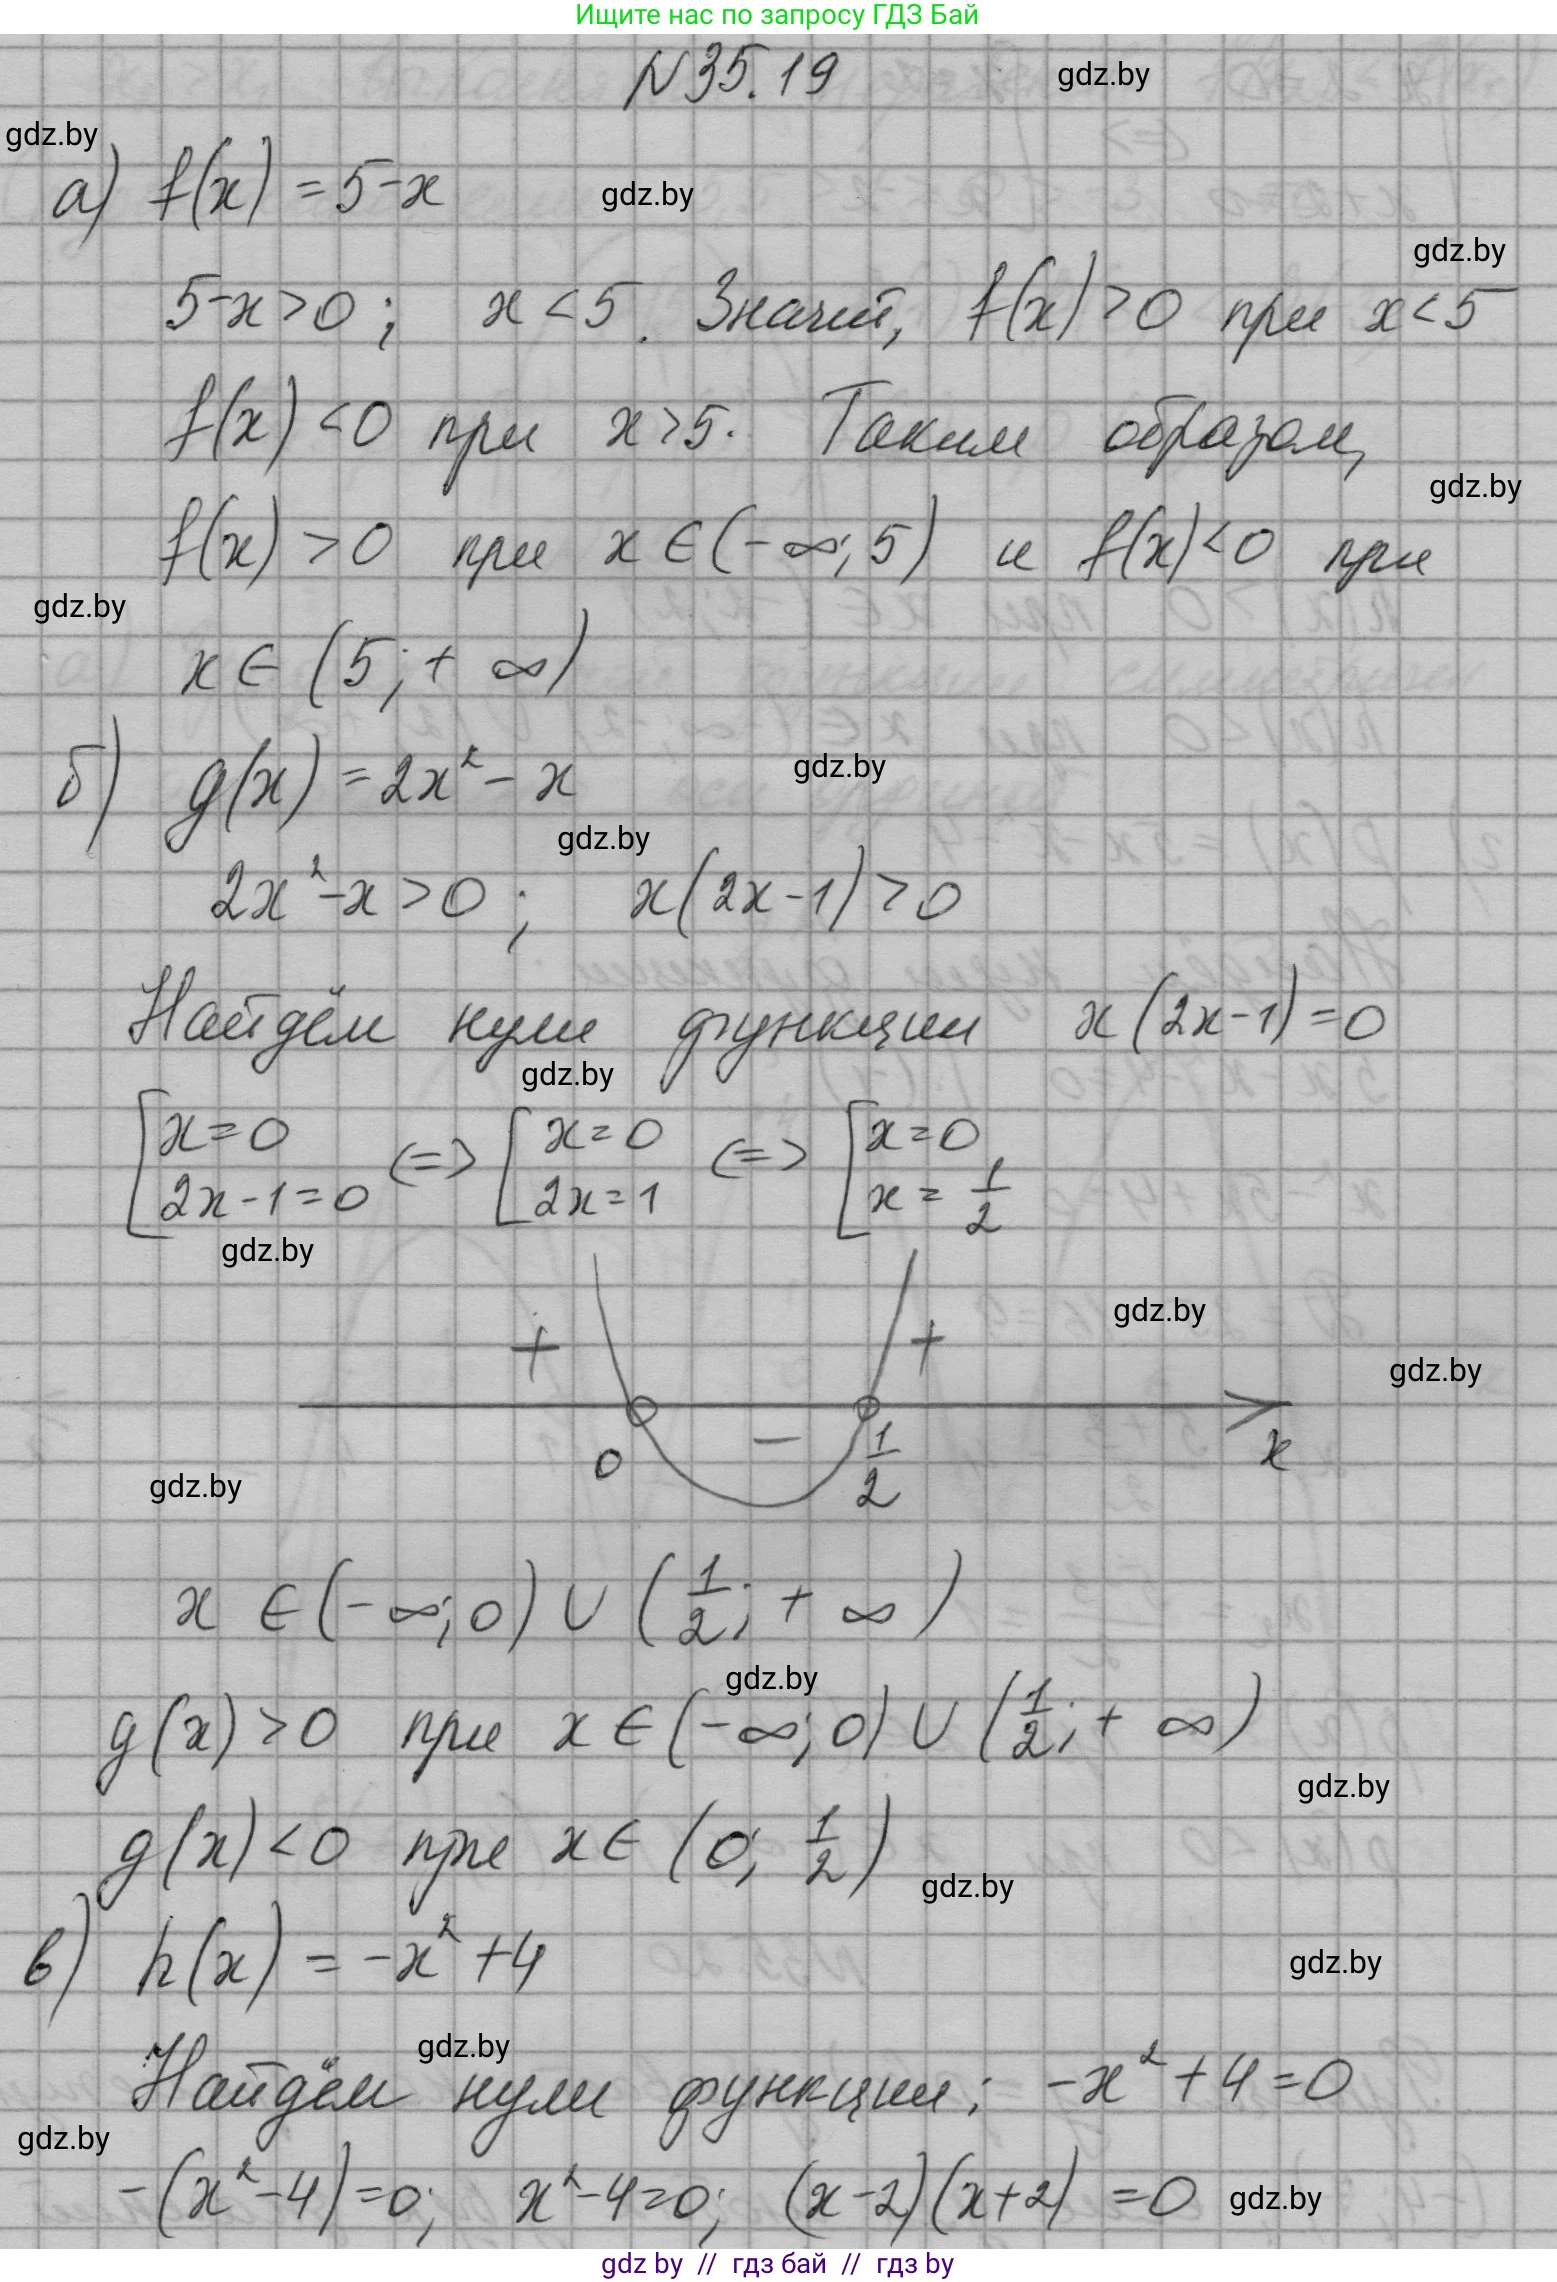 Ищите нас по запросу ГДЗ Бай
N 35.19
gdz.by
gdz.by
а) f(x) = 5-x
gdz.by
gdz.by
5-x>0 ; x<5. Значит, f(x)>0 при x<5
f(x)<0 при x>5. Таким образом,
gdz.by
f(x)>0 при x∈(-∞;5) и f(x)<0 при
gdz.by
x∈(5;+∞)
б) g(x)=2x²-x
gdz.by
gdz.by
2x²-x>0 ; x(2x-1)>0
Найдём нули функции x(2x-1)=0
gdz.by
[x=0 <=> [x=0 <=> [x=0
2x-1=0 2x=1 x=1/2
gdz.by
gdz.by
+ +
gdz.by
0 - 1/2 x
gdz.by
x∈(-∞;0)∪(1/2;+∞)
gdz.by
g(x)>0 при x∈(-∞;0)∪(1/2;+∞)
gdz.by
g(x)<0 при x∈(0;1/2)
gdz.by
в) h(x)=-x²+4
gdz.by
gdz.by
Найдём нули функции: -x²+4=0
gdz.by
-(x²-4)=0; x²-4=0; (x-2)(x+2)=0
gdz.by
gdz by // гдз бай // гдз by